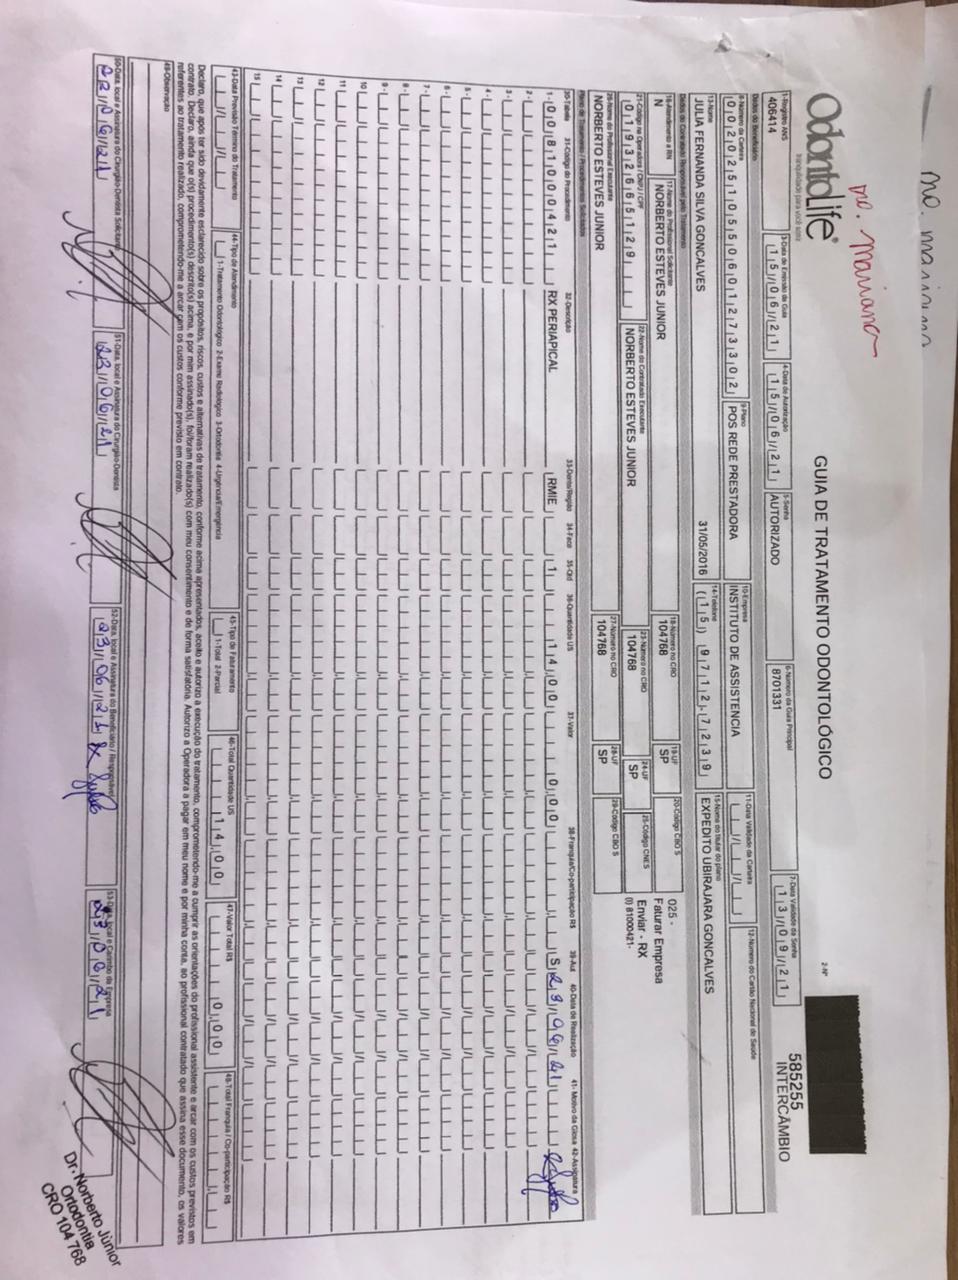 me. mariana
OdontoLife®
tranquilidade para você sorrir
GUIA DE TRATAMENTO ODONTOLÓGICO
2-Nº
585255
INTERCÂMBIO
1-Registro ANS
406414
3-Data de Emissão da Guia
15/06/21
4-Data de Autorização
15/06/21
5-Senha
AUTORIZADO
6-Número da Guia Principal
8701331
7-Data Validade da Senha
13/09/21
Dados do Beneficiário
8-Número da Carteira
00202510550601273302
9-Plano
POS REDE PRESTADORA
10-Empresa
INSTITUTO DE ASSISTENCIA
11-Data Validade da Carteira
12-Número do Cartão Nacional de Saúde
13-Nome
JULIA FERNANDA SILVA GONCALVES
31/05/2016
14-Telefone
(15) 97127239
15-Nome do titular do plano
EXPEDITO UBIRAJARA GONCALVES
Dados do Contratado Responsável pelo Tratamento
16-Atendimento a RN
N
17-Nome do Profissional Solicitante
NORBERTO ESTEVES JUNIOR
18-Número no CRO
104768
19-UF
SP
20-Código CBO S
025 -
Faturar Empresa
Enviar - RX
(I) 81000421-
21-Código na Operadora / CNPJ / CPF
01932665129
22-Nome do Contratado Executante
NORBERTO ESTEVES JUNIOR
23-Número no CRO
104768
24-UF
SP
25-Código CNES
26-Nome do Profissional Executante
NORBERTO ESTEVES JUNIOR
27-Número no CRO
104768
28-UF
SP
29-Código CBO S
Plano de Tratamento / Procedimentos Solicitados
30-Tabela 31-Código do Procedimento 32-Descrição 33-Dente/Região 34-Face 35-Qtd 36-Quantidade US 37-Valor 38-Franquia/Co-participação R$ 39-Aut 40-Data de Realização 41- Motivo da Glosa 42-Assinatura
1- 00 81000421 RX PERIAPICAL RMIE 1 14,00 0,00 S 23/06/21
2 -
3 -
4 -
5 -
6 -
7 -
8 -
9 -
10
11
12
13
14
15
43-Data Previsão Término do Tratamento
44-Tipo de Atendimento
1-Tratamento Odontológico 2-Exame Radiológico 3-Ortodontia 4-Urgência/Emergência
45-Tipo de Faturamento
1-Total 2-Parcial
46-Total Quantidade US
14,00
47-Valor Total R$
0,00
48-Total Franquia / Co-participação R$
Declaro, que após ter sido devidamente esclarecido sobre os propósitos, riscos, custos e alternativas de tratamento, conforme acima apresentados, aceito e autorizo a execução do tratamento, comprometendo-me a cumprir as orientações do profissional assistente e arcar com os custos previstos em
contrato. Declaro, ainda que o(s) procedimento(s) descrito(s) acima, e por mim assinado(s), foi/foram realizado(s) com meu consentimento e de forma satisfatória. Autorizo a Operadora a pagar em meu nome e por minha conta, ao profissional contratado que assina esse documento, os valores
referentes ao tratamento realizado, comprometendo-me a arcar com os custos conforme previsto em contrato.
49-Observação
50-Data, local e Assinatura do Cirurgião-Dentista Solicitante
22/06/21
51-Data, local e Assinatura do Cirurgião-Dentista
23/06/21
52-Data, local e Assinatura do Beneficiário / Responsável
23/06/21 x
53-Data, local e Carimbo da Empresa
23/06/21
Dr. Norberto Júnior
Ortodontia
CRO 104768